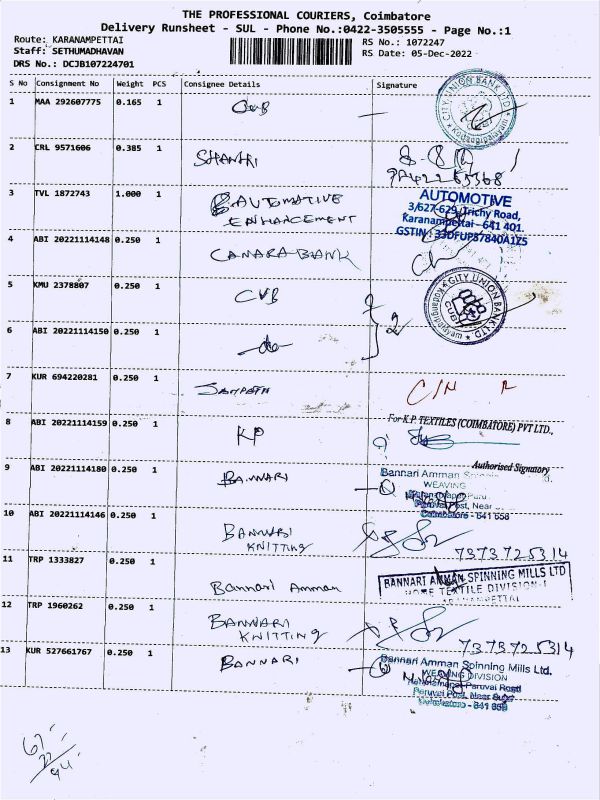 THE PROFESSIONAL COURIERS, Coimbatore
Delivery Runsheet - SUL - Phone No.:0422-3505555 - Page No.:1
Route: KARANAMPETTAI
Staff: SETHUMADHAVAN
DRS No.: DCJB107224701
RS No.: 1072247
RS Date: 05-Dec-2022
S No Consignment No Weight PCS Consignee Details Signature
1 MAA 292607775 0.165 1 CUB
CITY UNION BANK LTD.
2 CRL 9571606 0.385 1 SHANTRI
3 TVL 1872743 1.000 1 AUTOMOTIVE
ENHANCEMENT
AUTOMOTIVE
3/627-629, Trichy Road,
Karanampettai - 641 401.
GSTIN : 33DFUPS7840A1Z5
4 ABI 20221114148 0.250 1 CANARA BANK
5 KMU 2378807 0.250 1 CUB
CITY UNION BANK LTD.
CUB
2
6 ABI 20221114150 0.250 1 do
7 KUR 694220281 0.250 1 SAMPATH
8 ABI 20221114159 0.250 1 KP
For K.P. TEXTILES (COIMBATORE) PVT LTD.,
Authorised Signatory
9 ABI 20221114180 0.250 1 BANNARI
Bannari Amman
WEAVING
Post, Near
Coimbatore - 641 658
10 ABI 20221114146 0.250 1 BANNARI
KNITTING
7373725314
11 TRP 1333827 0.250 1 Bannari Amman
BANNARI AMMAN SPINNING MILLS LTD
HOME TEXTILE DIVISION-1
KARANAMPETTAI
12 TRP 1960262 0.250 1 BANNARI
KNITTING
7373725314
13 KUR 527661767 0.250 1 BANNARI
Bannari Amman Spinning Mills Ltd.
WEAVING DIVISION
Paruvai Road
Paruvai Post, Near Sulur
Coimbatore - 641 658